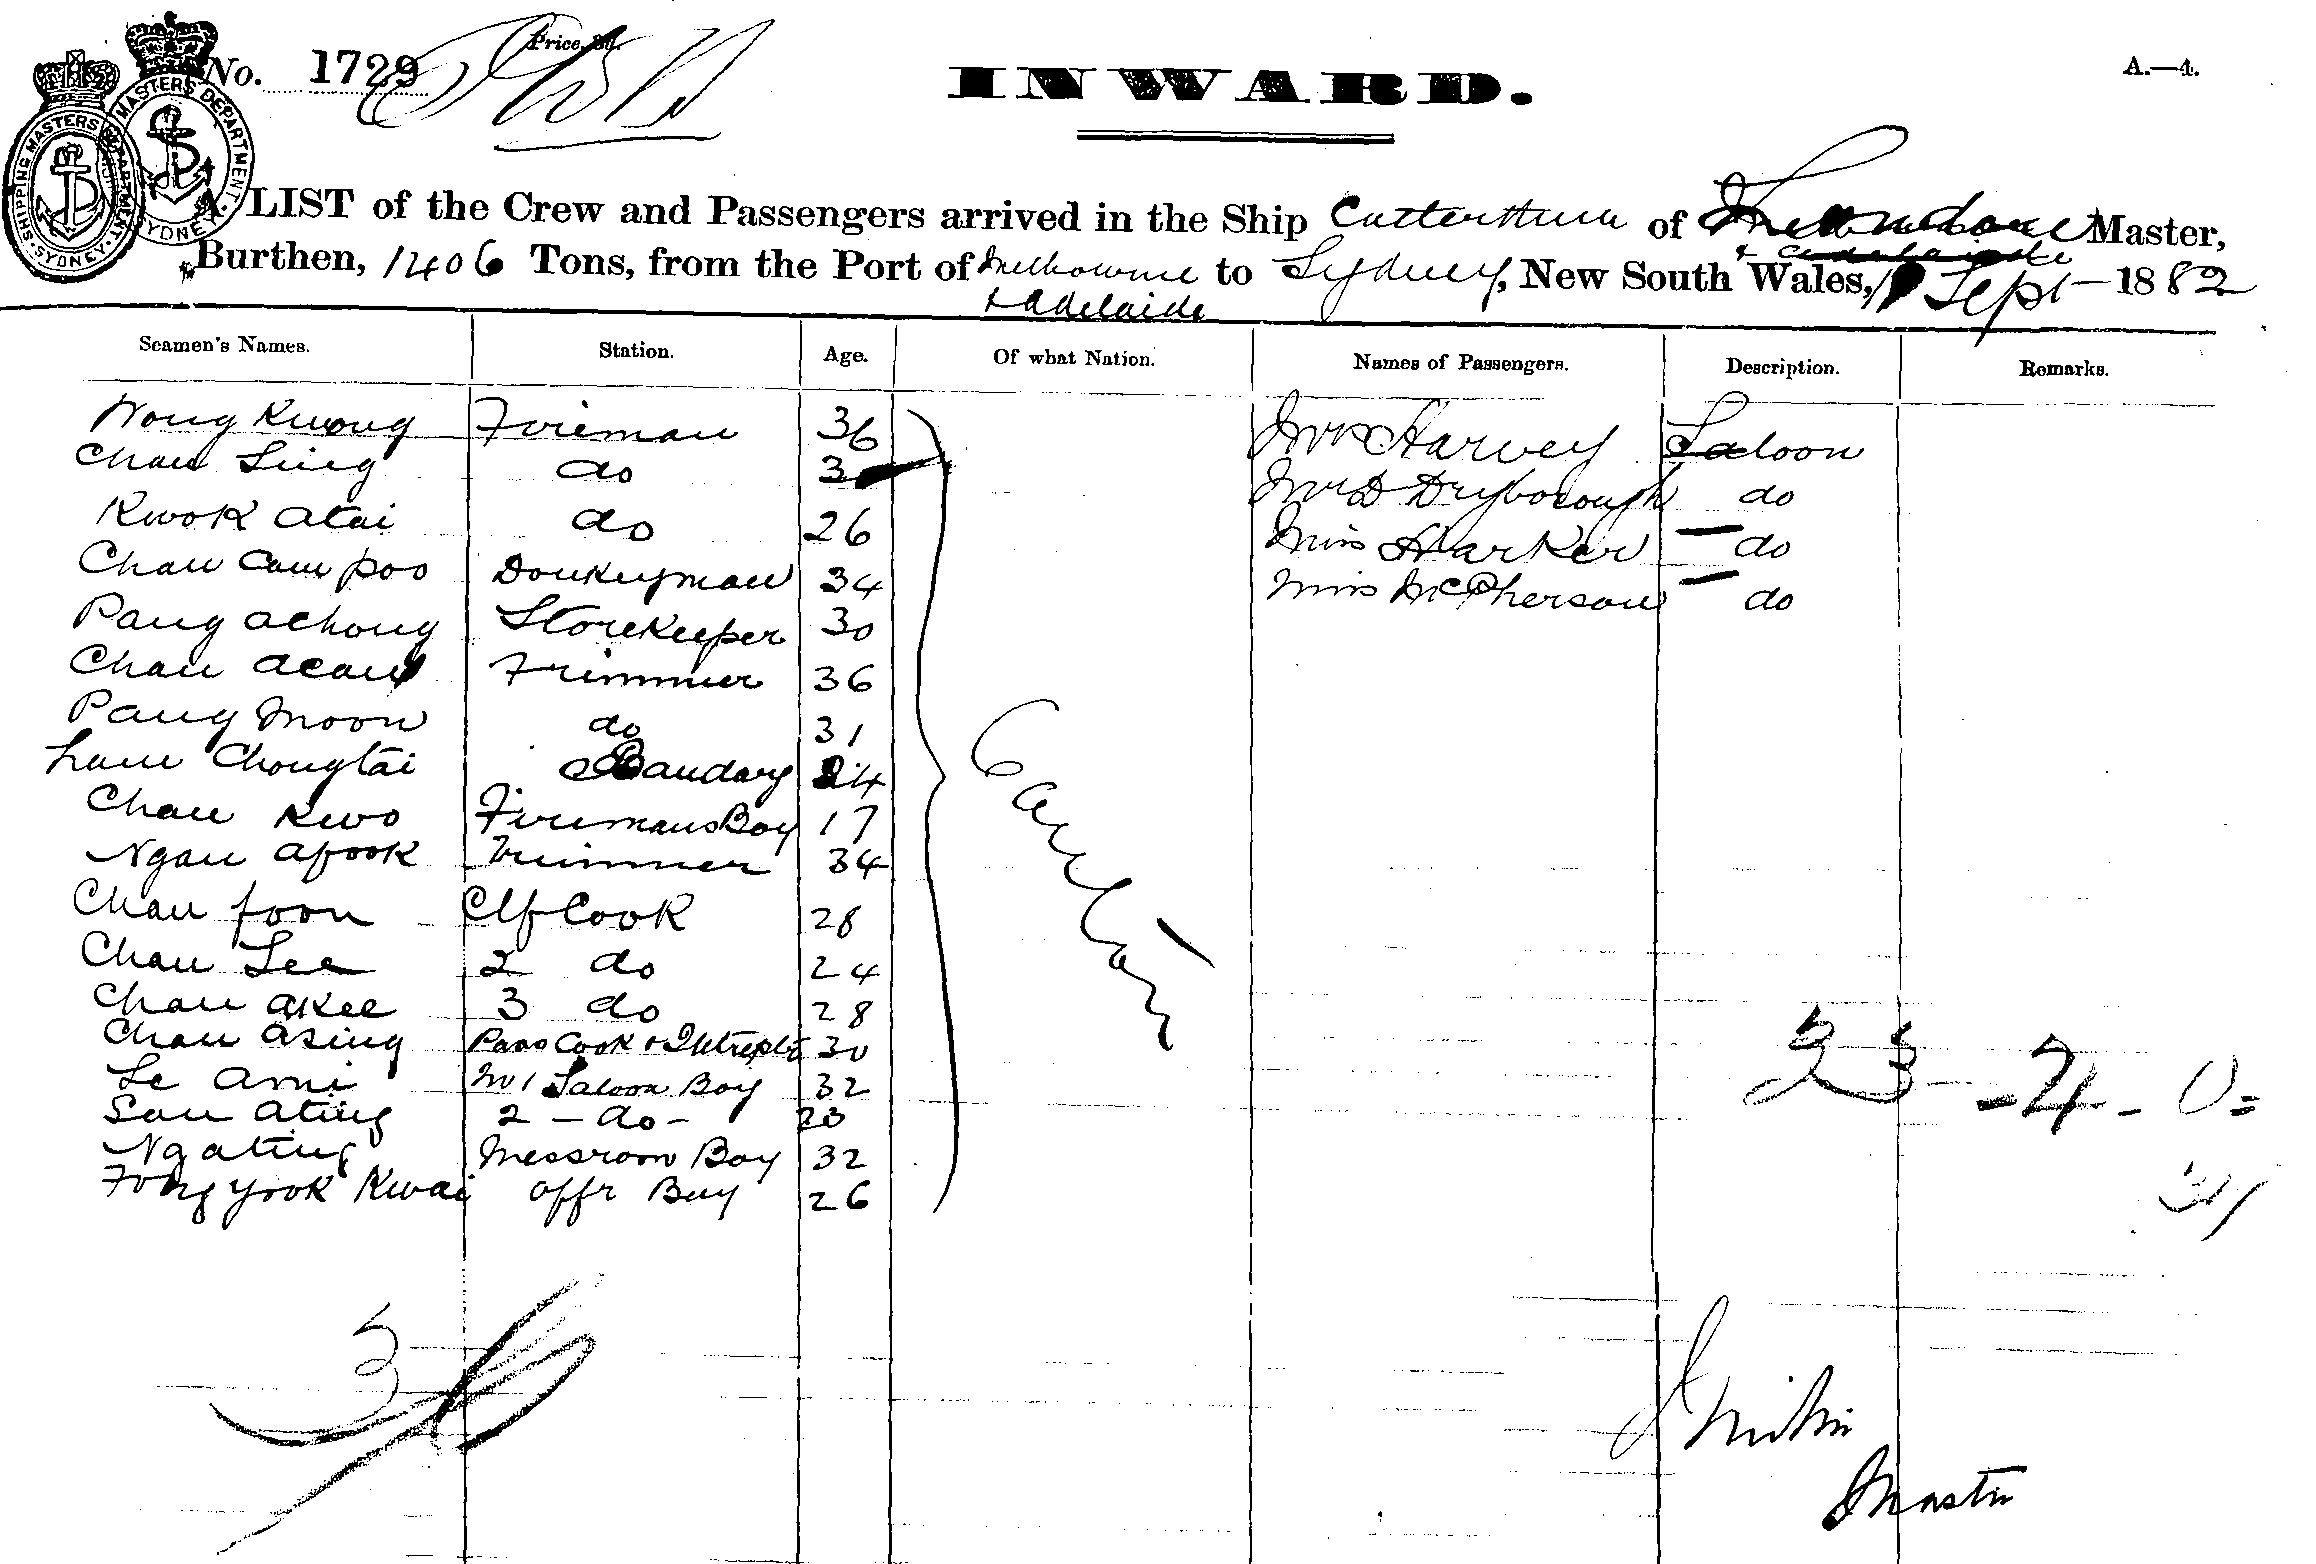 No. 1729
Price, 3d.
INWARD.
A.—4.
SHIPPING MASTERS DEPARTMENT · SYDNEY ·
MASTERS DEPARTMENT. SYDNEY
A LIST of the Crew and Passengers arrived in the Ship Catterthun of Master,
Burthen, 1406 Tons, from the Port of Melbourne to Sydney, New South Wales, Sept 1882
& Adelaide
Seamen's Names. Station. Age. Of what Nation. Names of Passengers. Description. Remarks.
Wong Kwong Fireman 36 Mrs Harvey Saloon
Chan Sing do 3 Mr D Dryborough do
Kwok Atai do 26 Miss Harker do
Chan Cam poo Donkeyman 34 Miss McPherson do
Pang achong StoreKeeper 30
Chan acan Trimmer 36
Pang Moon do 31
Lam Chongtai Bandary 24
Chan Kwo Firemans Boy 17
Ngan afook Trimmer 34
Canton
Chan foon Clf Cook 28
Chan See 2 do 24
Chan aKee 3 do 28
Chan asing Pass Cook & 30
Le Ami No 1 Saloon Boy 32
San ating 2 - do - 23
Ng ating Messroom Boy 32
Fong yook Kwai offr Boy 26
53 - 4 - 0 =
3
Master